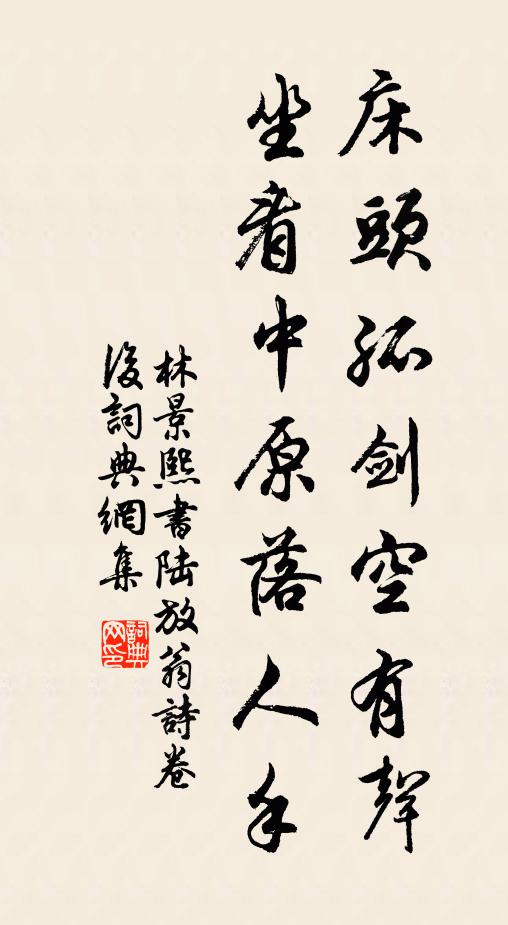 床頭孤劍空有聲
坐看中原落人手
林景熙書陆放翁詩卷
後詞典網集
詞典网印